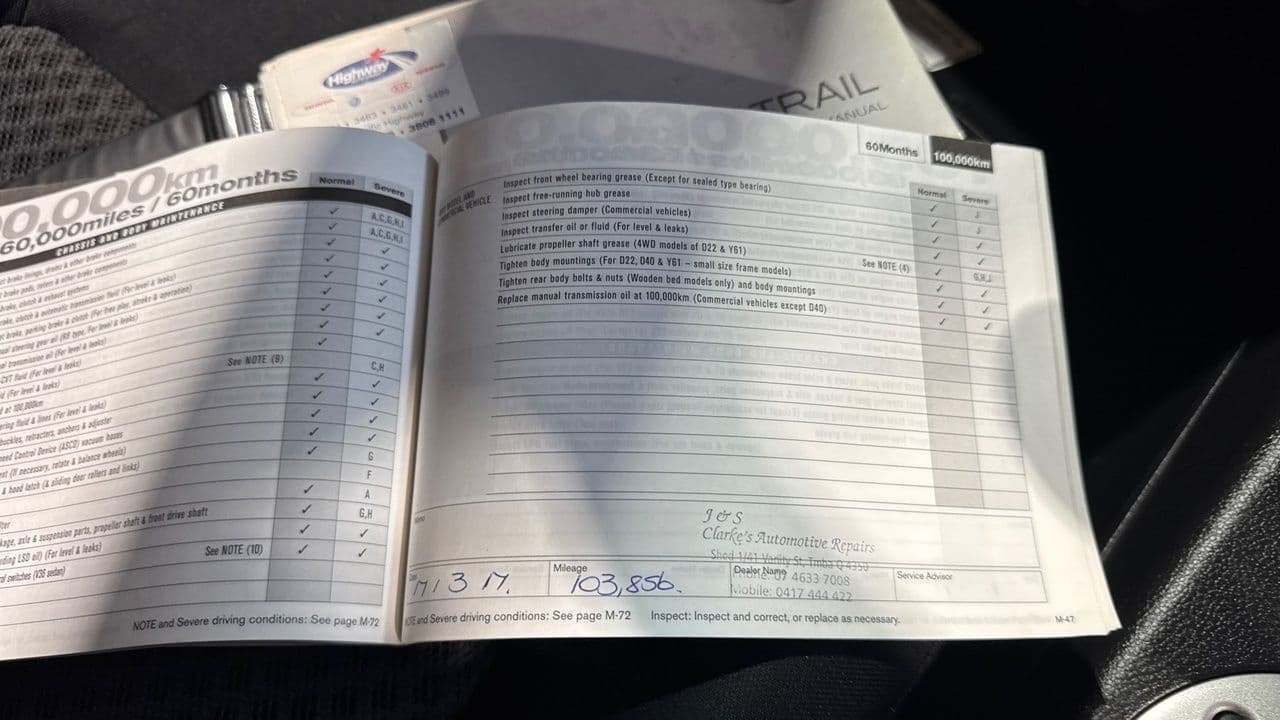 Highway
KIA
3463 • 3461 • 3466
Highway
3808 1111
TRAIL
MANUAL
0,000km
60,000miles / 60months
CHASSIS AND BODY MAINTENANCE
Normal
Severe
✓ A,C,G,H,I
✓ A,C,G,H,I
brake linings, drums & other brake components
brake pads, rotors & other brake components
brake, clutch & exhaust systems
brake, clutch & automatic transmission fluid (For level & leaks)
brake, parking brake & clutch (For free play, stroke & operation)
steering gear oil (RB type, For level & leaks)
transmission oil (For level & leaks)
CVT fluid (For level & leaks)
See NOTE (9)
C,H
(For level & leaks)
at 100,000km
fluid & lines (For level & leaks)
buckles, retractors, anchors & adjuster
Speed Control Device (ASCD) vacuum hoses
(If necessary, rotate & balance wheels)
G
& hood latch (& sliding door rollers and links)
F
A
axle & suspension parts, propeller shaft & front drive shaft
G,H
LSD oil) (For level & leaks)
See NOTE (10)
switches (V36 sedan)
NOTE and Severe driving conditions: See page M-72
60Months
100,000km
Normal
Severe
MODEL AND
VEHICLE
Inspect front wheel bearing grease (Except for sealed type bearing) ✓ J
Inspect free-running hub grease ✓ J
Inspect steering damper (Commercial vehicles) ✓ ✓
Inspect transfer oil or fluid (For level & leaks) ✓ ✓
Lubricate propeller shaft grease (4WD models of D22 & Y61) See NOTE (4) ✓ G,H,J
Tighten body mountings (For D22, D40 & Y61 – small size frame models) ✓ ✓
Tighten rear body bolts & nuts (Wooden bed models only) and body mountings ✓ ✓
Replace manual transmission oil at 100,000km (Commercial vehicles except D40) ✓ ✓
J & S
Clarke's Automotive Repairs
Shed 1/41 Vanity St, Tmba Q 4350
Phone: 07 4633 7008
Mobile: 0417 444 422
17 13 17.
Mileage
103,856.
Dealer Name
Service Advisor
NOTE and Severe driving conditions: See page M-72 Inspect: Inspect and correct, or replace as necessary.
M-47